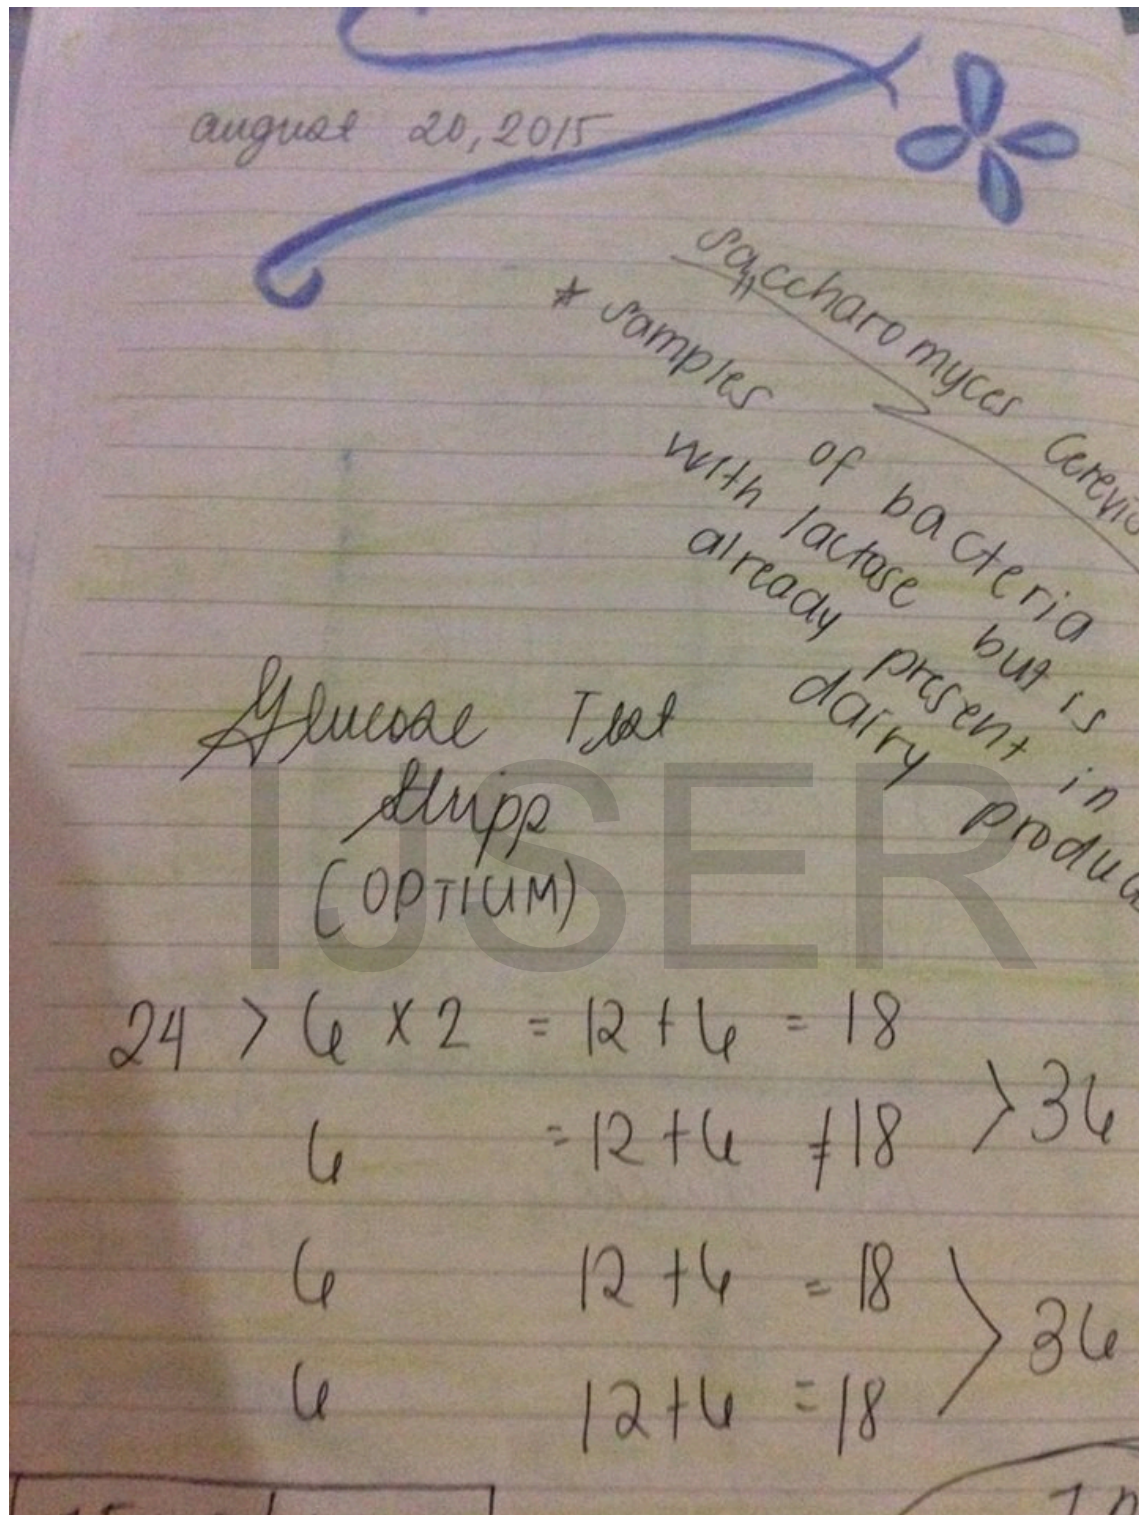 august 20, 2015
Saccharomyces
* samples of bacteria
with lactase but is
already present in
dairy
Glucose Test
Stripp
(OPTIUM)
IJSER
24 > 6 x 2 = 12 + 6 = 18
6 = 12 + 6 = 18
> 36
6 12 + 6 = 18
6 12 + 6 = 18
> 36